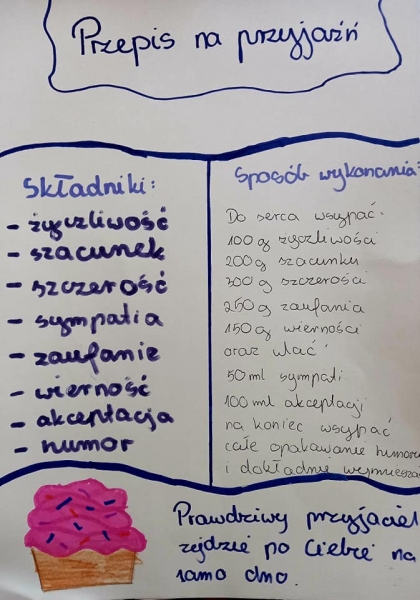 Przepis na przyjaźń
Składniki:
- życzliwość
- szacunek
- szczerość
- sympatia
- zaufanie
- wierność
- akceptacja
- humor
Sposób wykonania:
Do serca wsypać:
100 g życzliwości
200 g szacunku
300 g szczerości
250 g zaufania
150 g wierności
oraz wlać:
50 ml sympati
100 ml akceptacji
na koniec wsypać
całe opakowanie humoru
i dokładnie wymieszać
Prawdziwy przyjaciel
zejdzie po Ciebie na
samo dno.